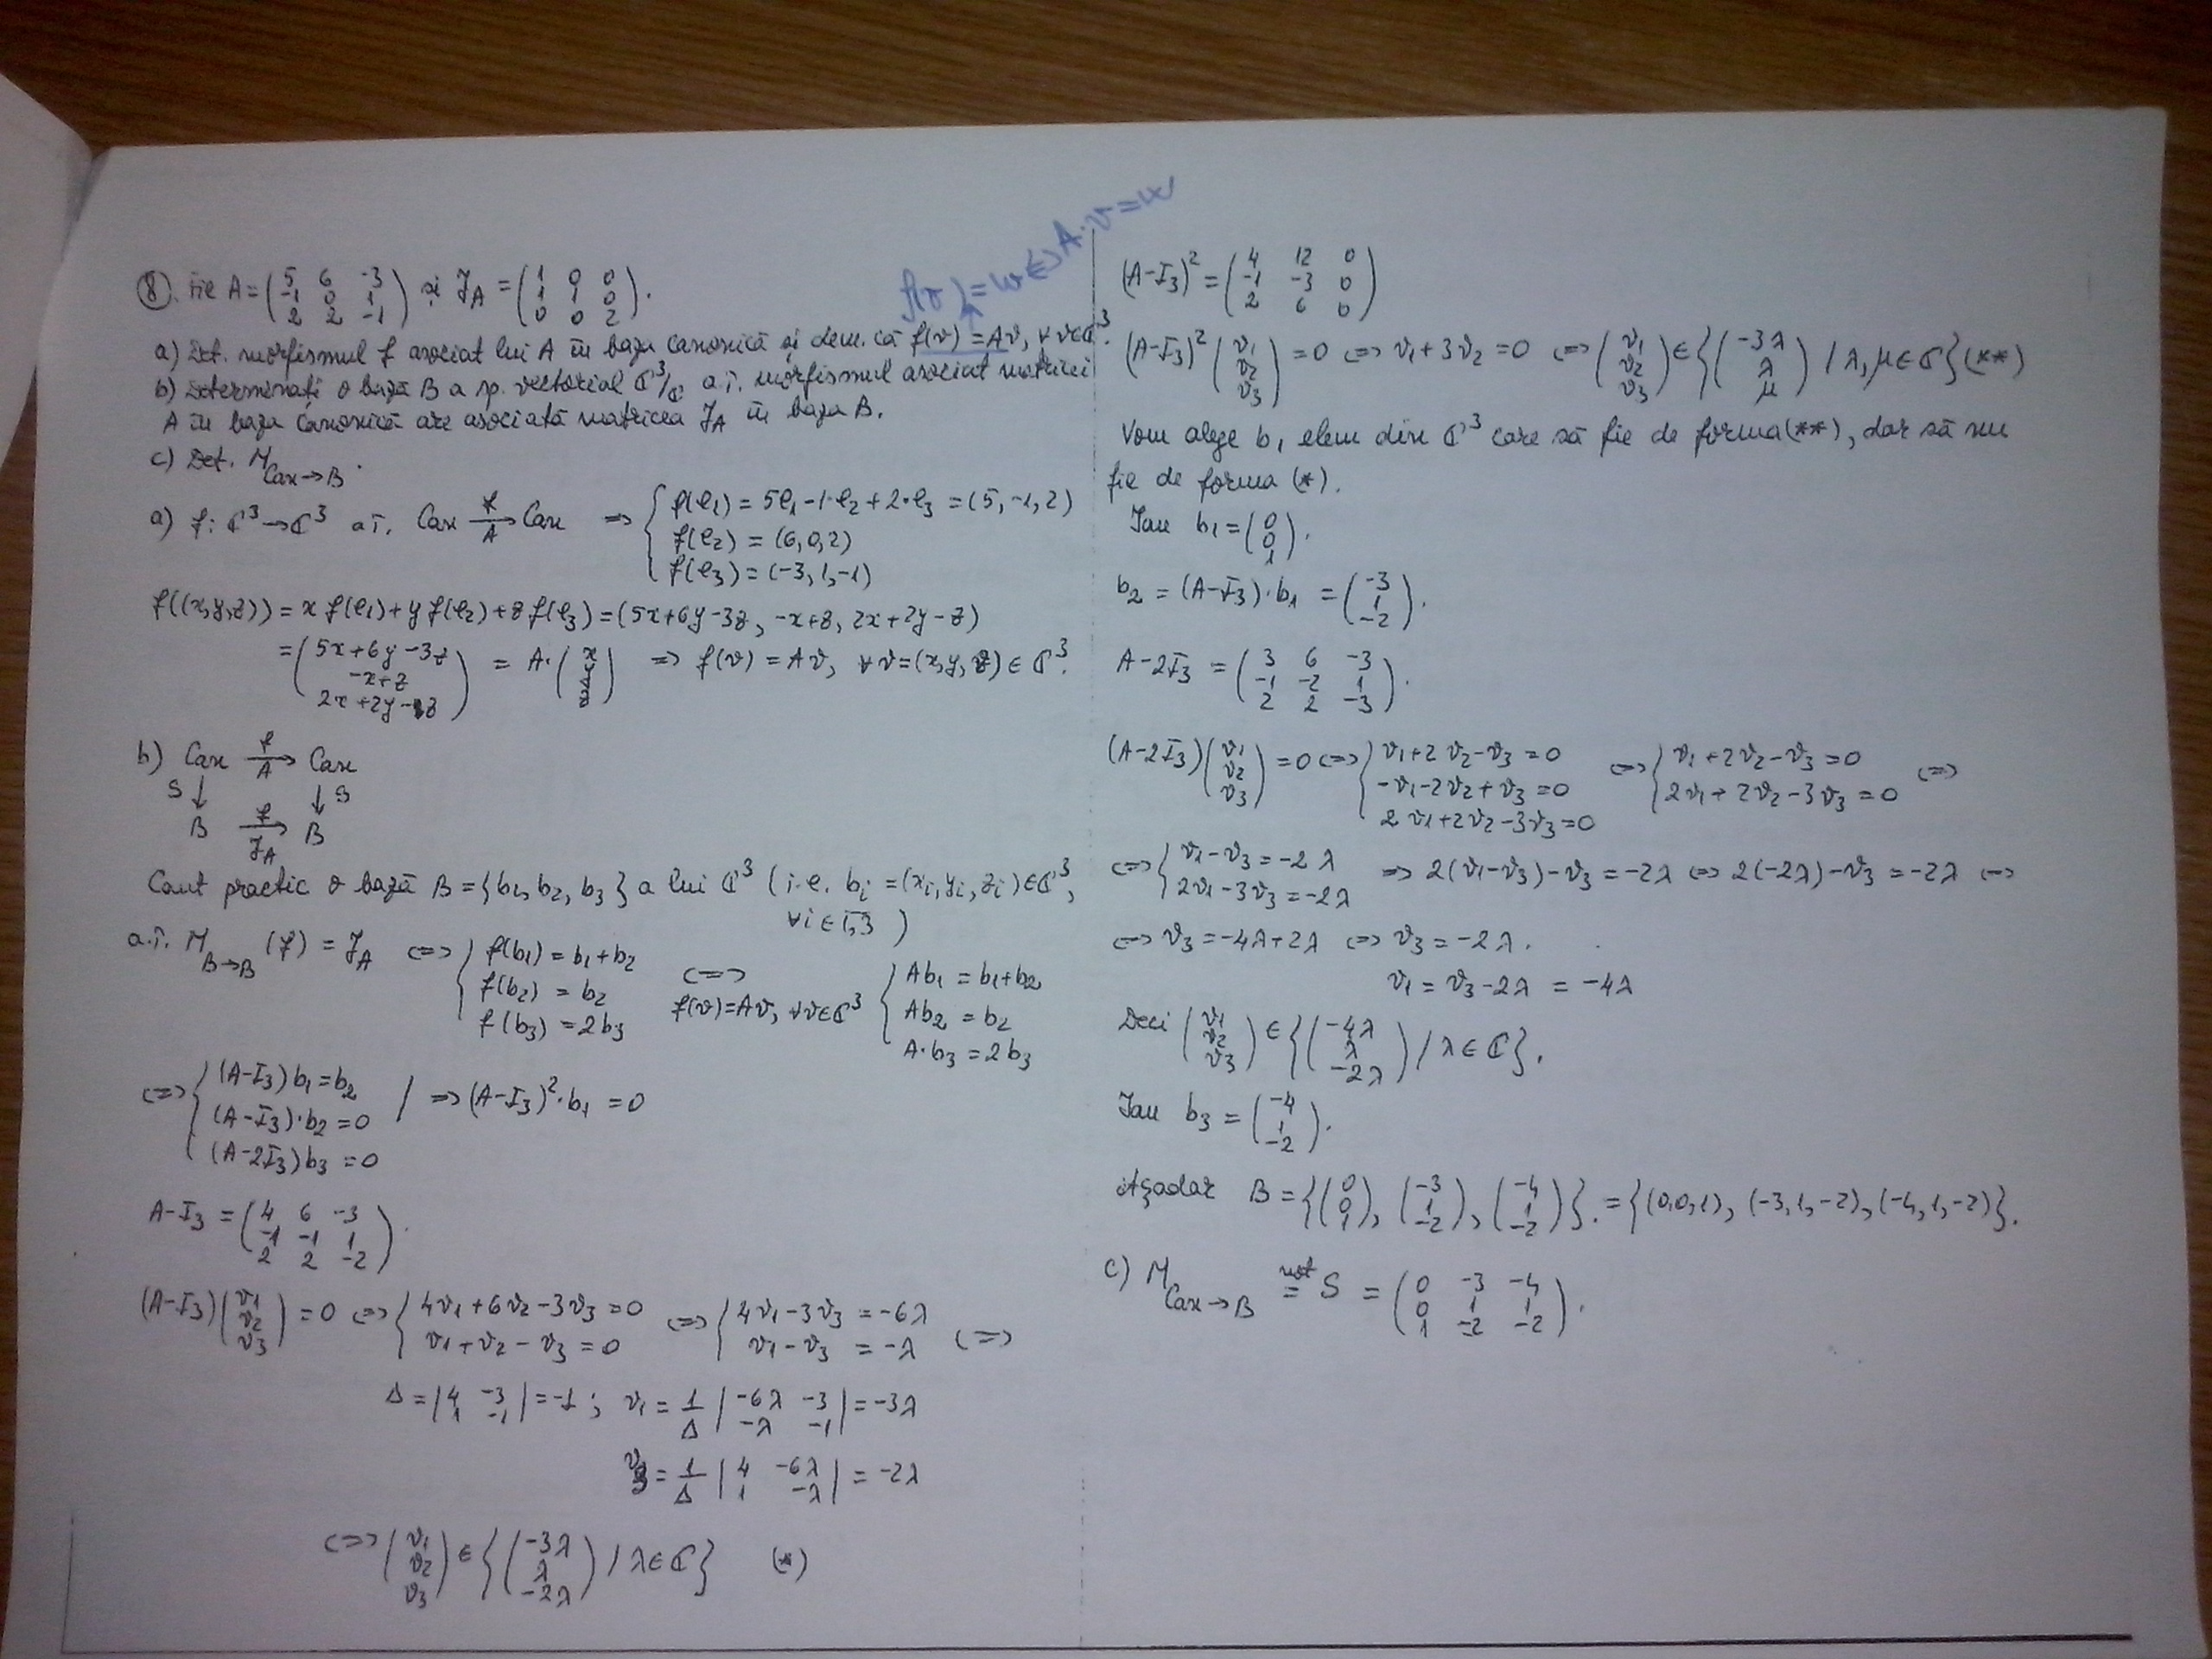 f(v) = w ⇔ A·v = w
⑧. Fie A = (5 6 -3; -1 0 1; 2 2 -1) și J_A = (1 0 0; 1 1 0; 0 0 2).
a) Det. morfismul f asociat lui A în baza canonică și dem. că f(v) = Av, ∀v∈ℂ³.
b) Determinați o bază B a sp. vectorial ℂ³/ℂ a.î. morfismul asociat matricei
A în baza canonică are asociată matricea J_A în baza B.
c) Det. M_{Can→B}.
a) f: ℂ³→ℂ³ a.î. Can —f/A→ Can ⇒ { f(e₁) = 5e₁ - 1·e₂ + 2·e₃ = (5, -1, 2)
f(e₂) = (6, 0, 2)
f(e₃) = (-3, 1, -1)
f((x,y,z)) = x f(e₁) + y f(e₂) + z f(e₃) = (5x+6y-3z, -x+z, 2x+2y-z)
= (5x+6y-3z; -x+z; 2x+2y-z) = A·(x; y; z) ⇒ f(v) = Av, ∀v=(x,y,z)∈ℂ³.
b) Can —f/A→ Can
S ↓ ↓ S
B —f/J_A→ B
Caut practic o bază B = {b₁, b₂, b₃} a lui ℂ³ (i.e. bᵢ = (xᵢ, yᵢ, zᵢ)∈ℂ³,
∀i∈1,3)
a.î. M_{B→B}(f) = J_A ⇔ { f(b₁) = b₁+b₂; f(b₂) = b₂; f(b₃) = 2b₃ ⇔ f(v)=Av, ∀v∈ℂ³ { Ab₁ = b₁+b₂; Ab₂ = b₂; A·b₃ = 2b₃
⇔ { (A-I₃)b₁ = b₂; (A-I₃)·b₂ = 0; (A-2I₃)b₃ = 0 / ⇒ (A-I₃)²·b₁ = 0
A-I₃ = (4 6 -3; -1 -1 1; 2 2 -2).
(A-I₃)(v₁; v₂; v₃) = 0 ⇔ { 4v₁+6v₂-3v₃ = 0; v₁+v₂-v₃ = 0 ⇔ { 4v₁-3v₃ = -6λ; v₁-v₃ = -λ ⇔
Δ = |4 -3; 1 -1| = -1; v₁ = 1/Δ |-6λ -3; -λ -1| = -3λ
v₃ = 1/Δ |4 -6λ; 1 -λ| = -2λ
⇔ (v₁; v₂; v₃) ∈ {(-3λ; λ; -2λ) / λ∈ℂ} (*)
(A-I₃)² = (4 12 0; -1 -3 0; 2 6 0)
(A-I₃)²(v₁; v₂; v₃) = 0 ⇔ v₁+3v₂ = 0 ⇔ (v₁; v₂; v₃) ∈ {(-3λ; λ; μ) / λ, μ∈ℂ} (**)
Vom alege b₁ elem din ℂ³ care să fie de forma (**), dar să nu
fie de forma (*).
Iau b₁ = (0; 0; 1).
b₂ = (A-I₃)·b₁ = (-3; 1; -2).
A-2I₃ = (3 6 -3; -1 -2 1; 2 2 -3).
(A-2I₃)(v₁; v₂; v₃) = 0 ⇔ { v₁+2v₂-v₃ = 0; -v₁-2v₂+v₃ = 0; 2v₁+2v₂-3v₃ = 0 ⇔ { v₁+2v₂-v₃ = 0; 2v₁+2v₂-3v₃ = 0 ⇔
⇔ { v₁-v₃ = -2λ; 2v₁-3v₃ = -2λ ⇒ 2(v₁-v₃)-v₃ = -2λ ⇔ 2(-2λ)-v₃ = -2λ ⇔
⇔ v₃ = -4λ+2λ ⇔ v₃ = -2λ.
v₁ = v₃-2λ = -4λ
Deci (v₁; v₂; v₃) ∈ {(-4λ; λ; -2λ) / λ∈ℂ}.
Iau b₃ = (-4; 1; -2).
Așadar B = {(0; 0; 1), (-3; 1; -2), (-4; 1; -2)}. = {(0,0,1), (-3,1,-2), (-4,1,-2)}.
c) M_{Can→B} not= S = (0 -3 -4; 0 1 1; 1 -2 -2).